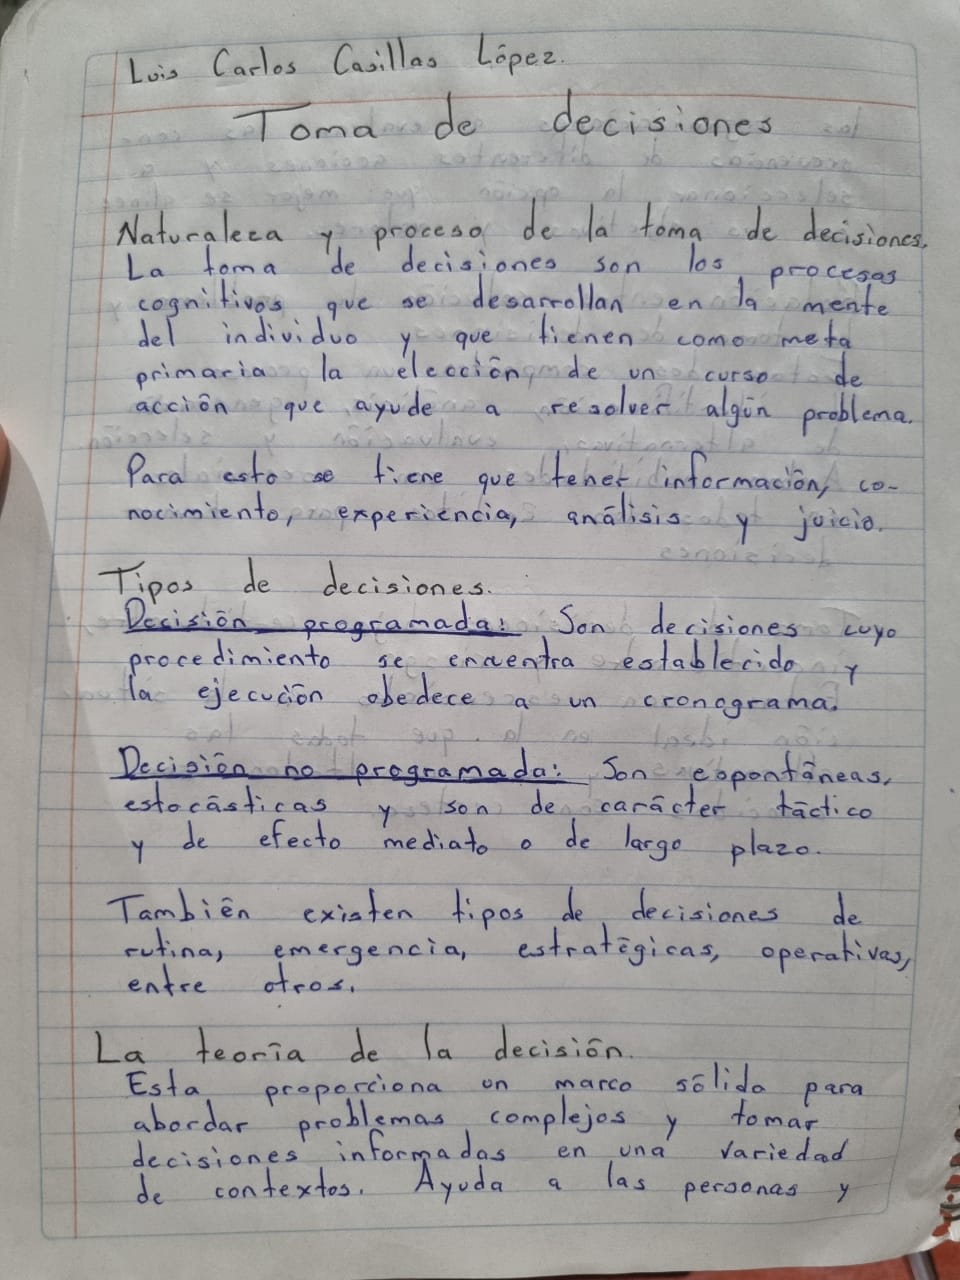 Luis Carlos Casillas López.
Toma de decisiones
Naturaleza y proceso de la toma de decisiones.
La toma de decisiones son los procesos
cognitivos que se desarrollan en la mente
del individuo y que tienen como meta
primaria la elección de un curso de
acción que ayude a resolver algún problema.
Para esto se tiene que tener información, co-
nocimiento, experiencia, análisis y juicio.
Tipos de decisiones.
Decisión programada: Son decisiones cuyo
procedimiento se encuentra establecido y
la ejecución obedece a un cronograma.
Decisión no programada: Son espontáneas,
estocásticas y son de carácter táctico
y de efecto mediato o de largo plazo.
También existen tipos de decisiones de
rutina, emergencia, estratégicas, operativas,
entre otros.
La teoría de la decisión.
Esta proporciona un marco sólido para
abordar problemas complejos y tomar
decisiones informadas en una variedad
de contextos. Ayuda a las personas y